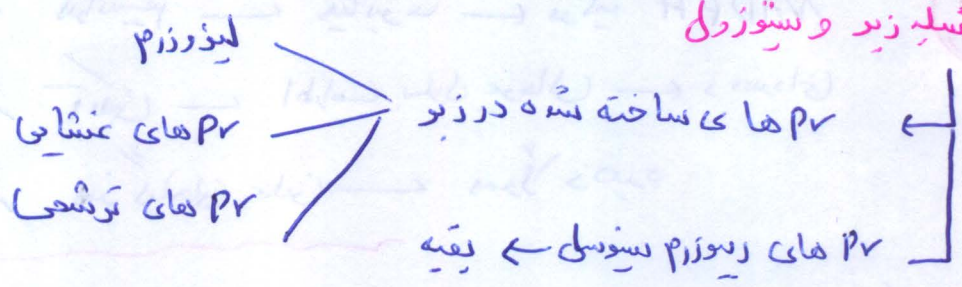 شبکه زبر و سیتوزول
Pr های ساخته شده در زبر
لیزوزوم
Pr های غشایی
Pr های ترشحی
Pr های ریبوزوم سیتوسل ← بقیه